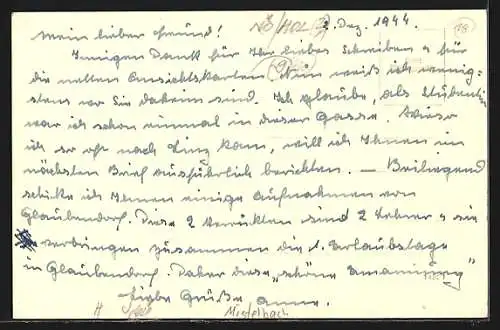 Mein lieber Freund! 2. Dez. 1944.
Innigen Dank für Ihr liebes Schreiben u für
die netten Ansichtskarten. Nun weiß ich wenig-
stens wo Sie daheim sind. Ich glaube, als Studentin
war ich schon einmal in dieser Gasse. Wieso
ich so oft nach Linz kam, will ich Ihnen im
nächsten Brief ausführlich berichten. — Beiliegend
schicke ich Ihnen einige Aufnahmen von
Glaubendorf. Diese 2 Verrückten sind 2 Lehrer u sie
verbringen zusammen die 1. Urlaubstage
in Glaubendorf. Daher diese "schöne
Liebe Grüße Anne.
Mistelbach